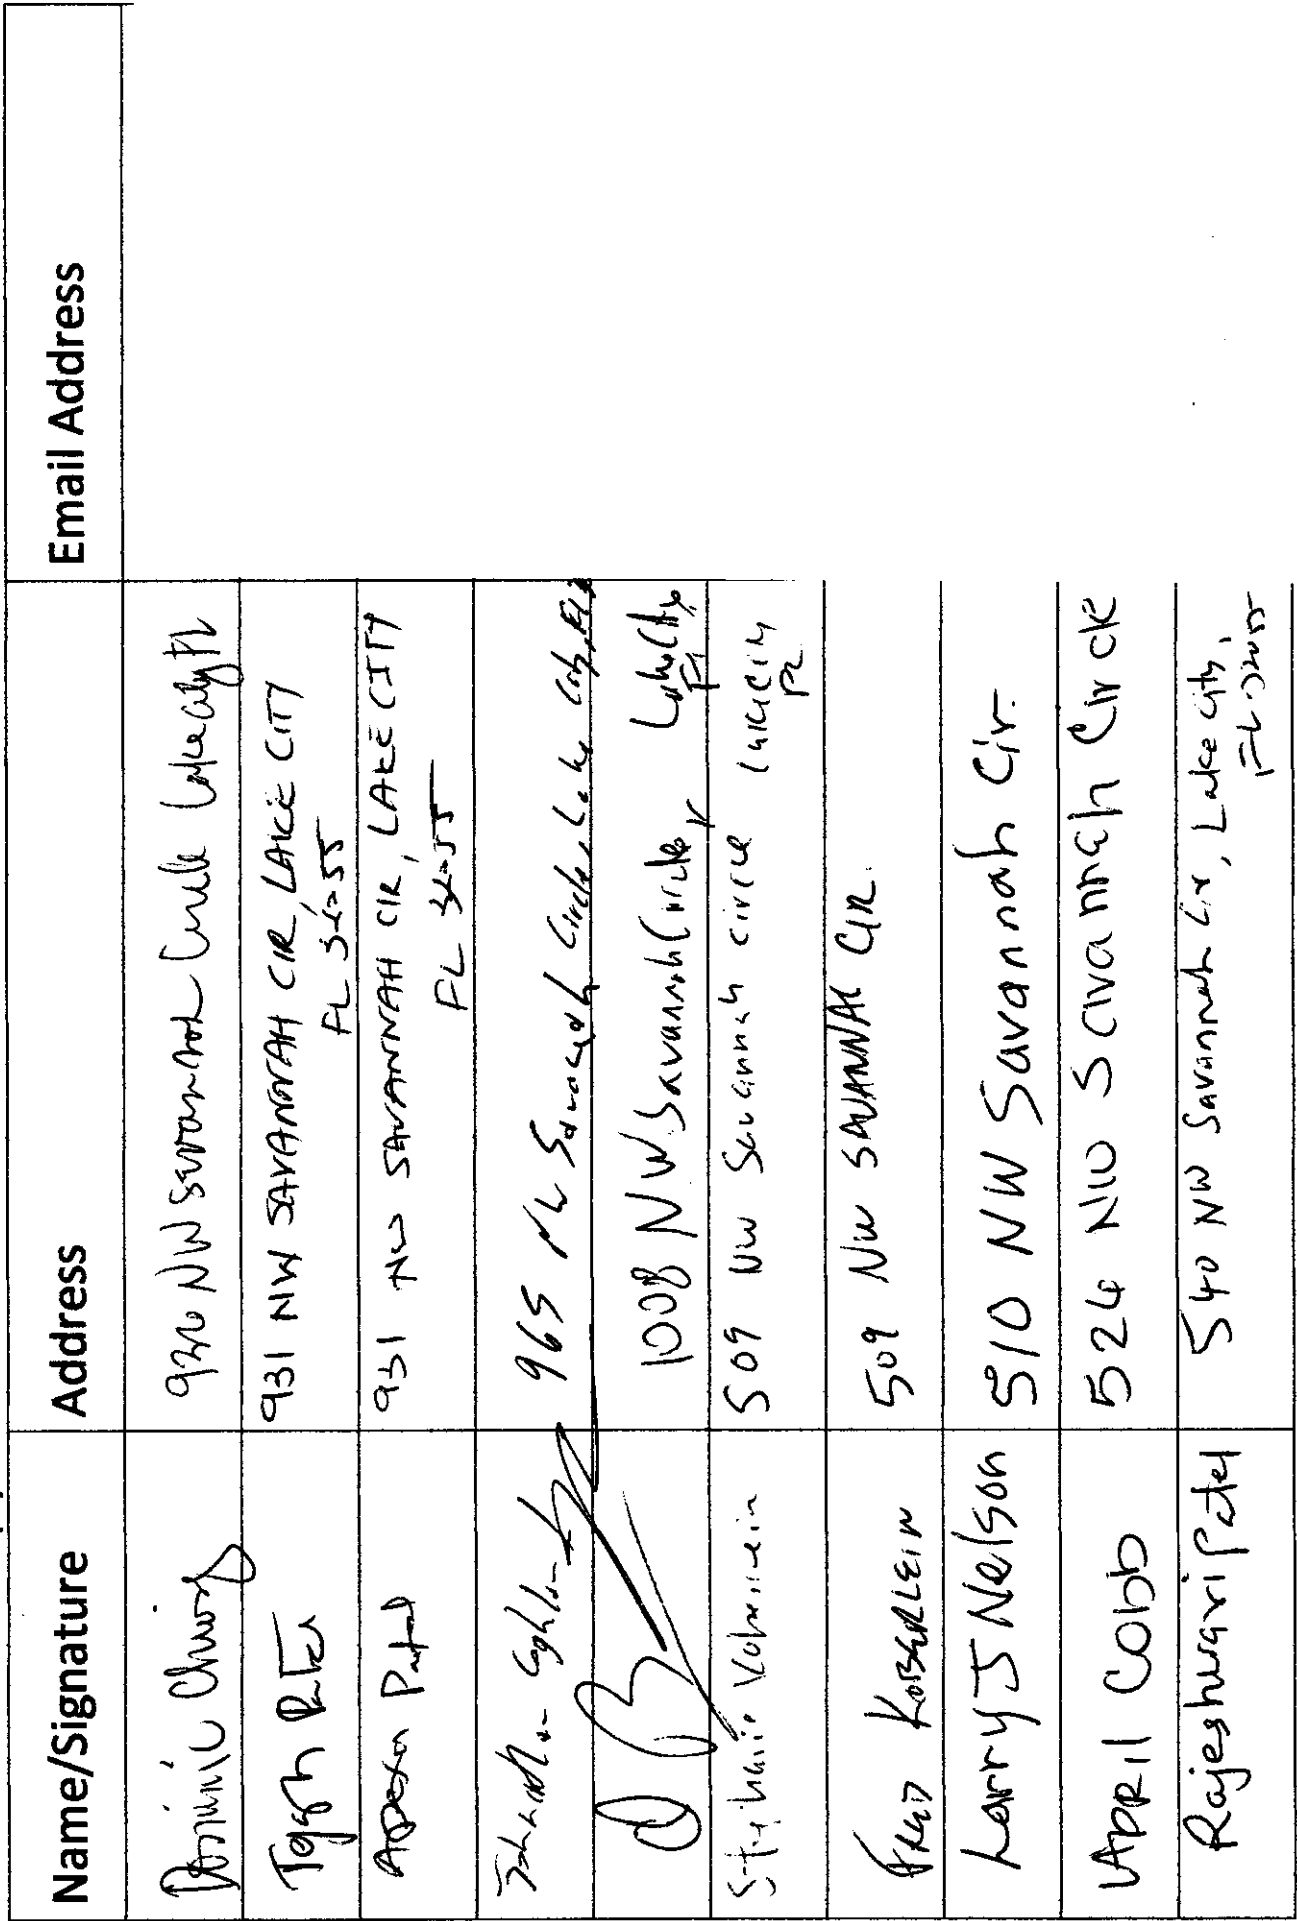 Name/Signature Address Email Address
Dominic Chung 920 NW Savannah Circle Lake City FL
931 NW SAVANNAH CIR, LAKE CITY
FL 32055
Patel 931 NW SAVANNAH CIR, LAKE CITY
FL 32055
965 NW Savannah Circle, Lake City, FL
1008 NW Savannah Circle, Lake City
Fl
Stephanie Koberlein 509 NW Savannah circle Lake City
FL
FRED KOBERLEIN 509 NW SAVANNAH CIR.
Larry J Nelson 510 NW Savannah Cir.
APRIL Cobb 524 NW Savannah Circle
Rajeshwari Patel 540 NW Savannah Cir, Lake City,
FL 32055